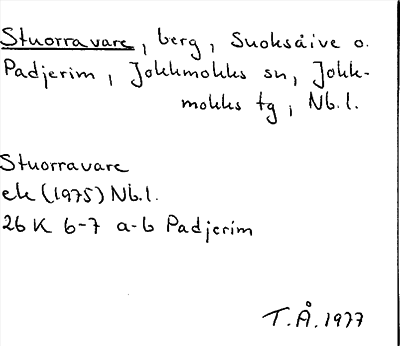 Stuorravare, berg, Suoksáive o.
Padjerim, Jokkmokks sn, Jokk-
mokks tg, Nb.l.
Stuorravare
ek (1975) Nb.l.
26 K 6-7 a-b Padjerim
T.Å. 1977